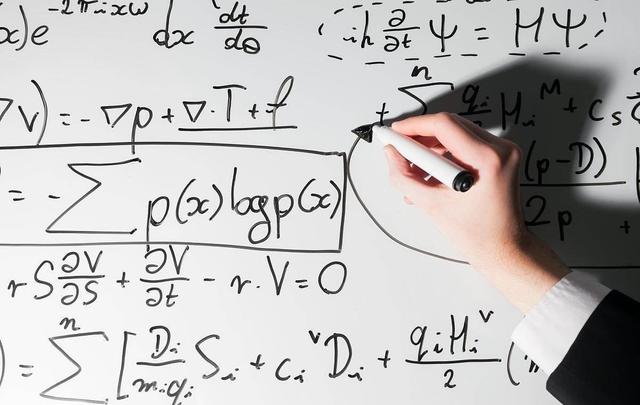 x)e^{-2πixω} dx dt/dθ
iħ ∂/∂t Ψ = HΨ
∇v) = -∇p + ∇·T + f
+ n∑ q_i H_i^M + c_s
= -∑ p(x) log p(x)
(p-D)/2p +
rS ∂V/∂S + ∂V/∂t - r·V = 0
) = n∑ [D_i/m_iq_i S_i + c_i^v D_i + q_iH_i^v/2 (